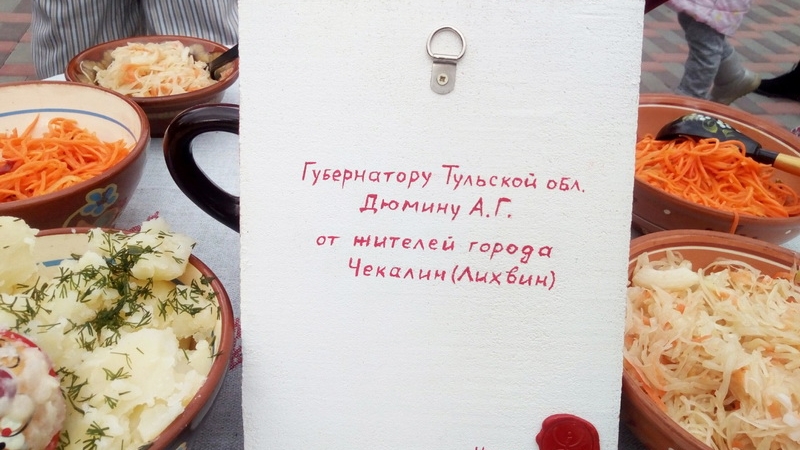 Губернатору Тульской обл.
Дюмину А.Г.
от жителей города
Чекалин (Лихвин)